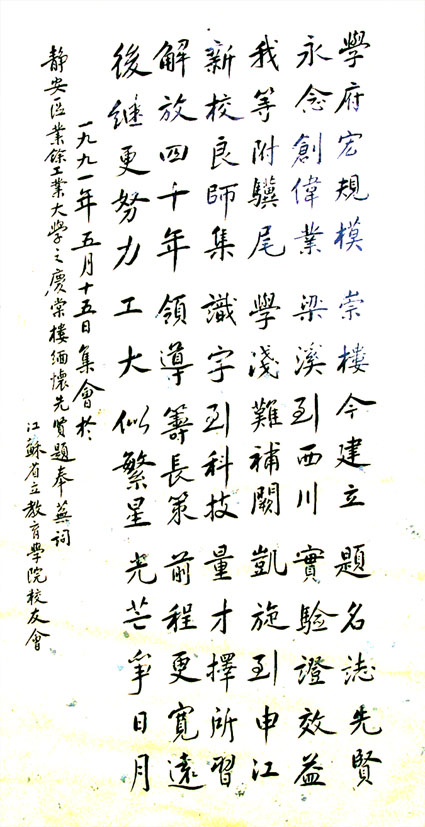 學府宏規模 崇樓今建立 題名誌先賢
永念創偉業 梁溪到西川 實验證效益
我等附驥尾 學淺難補闕 凱施到申江
新校良師集 識字到科技 量才擇所習
解放四十年 領導籌長策 前程更寬遠
後继更努力 工大似繁星 光芒爭日月
一九九一年五月十五日集會於
静安區業餘工業大学之慶棠樓缅懷先贤題奉蕪詞
江蘇省立教育學院校友會